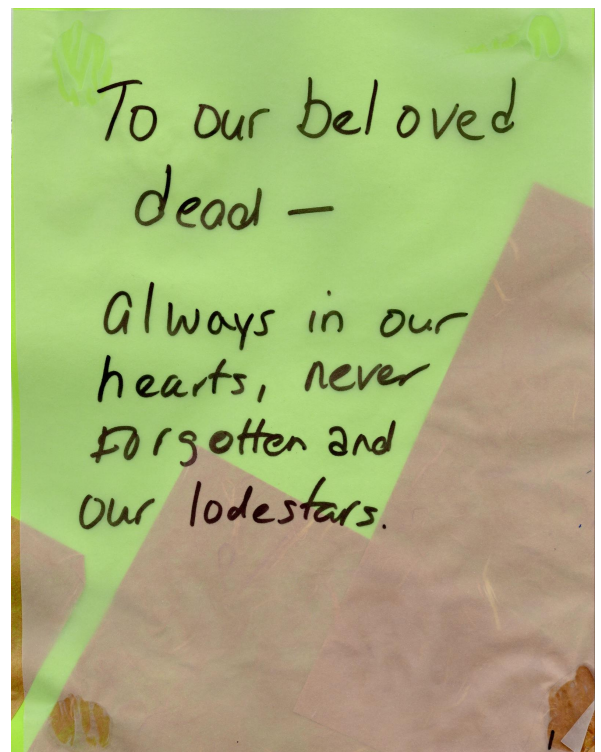 To our beloved
dead —
Always in our
hearts, never
Forgotten and
our lodestars.